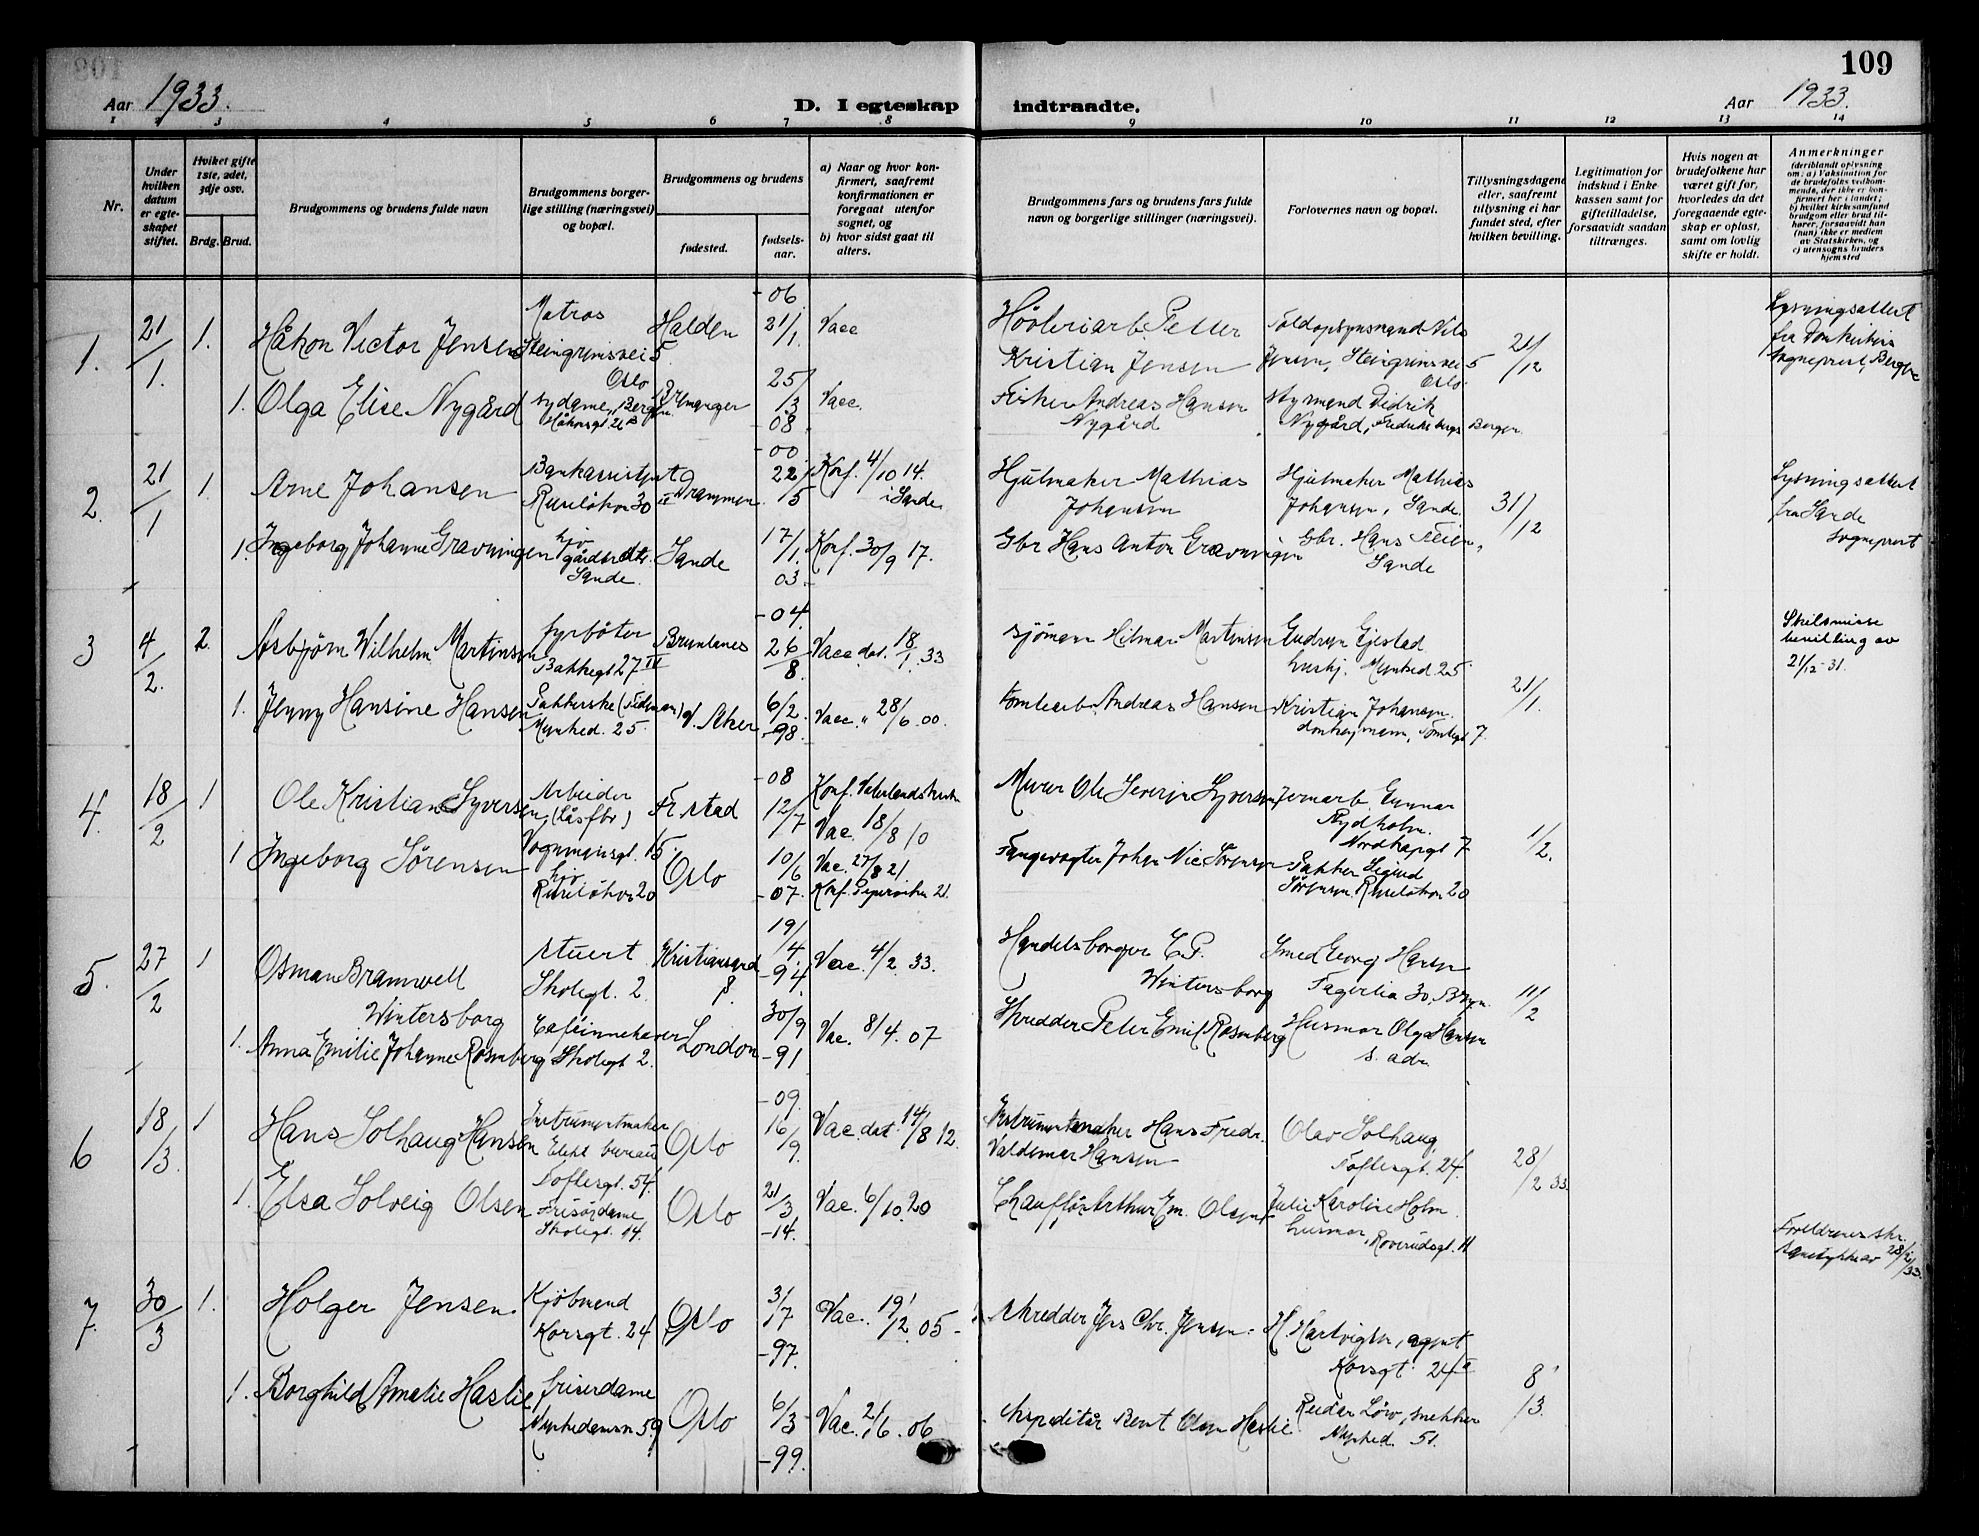 109
Aar 1933.
D. I egteskap
indtraadte.
Aar 1933.
1 2 3 4 5 6 7 8 9 10 11 12 13 14
Nr.
Under hvilken datum er egteskapet stiftet.
Hviket gifte 1ste, 2det, 3dje osv.
Brdg. Brud.
Brudgommens og brudens fulde navn
Brudgommens borgerlige stilling (næringsvei) og bopæl.
Brudgommens og brudens
fødested.
fødselsaar.
a) Naar og hvor konfirmert, saafremt konfirmationen er foregaat utenfor sognet, og
b) hvor sidst gaat til alters.
Brudgommens fars og brudens fars fulde navn og borgerlige stillinger (næringsvei).
Forlovernes navn og bopæl.
Tillysningsdagene eller, saafremt tillysning ei har fundet sted, efter hvilken bevilling.
Legitimation for indskud i Enkekassen samt for giftetilladelse, forsaavidt saadan tiltrænges.
Hvis nogen av brudefolkene har været gift før, hvorledes da det foregaaende egteskap er opløst, samt om lovlig skifte er holdt.
Anmerkninger
(deriblandt oplysning om: a) Vaksination for de brudefolks vedkommende, der ikke er konfirmert her i landet; b) hvilket kirkesamfund brudgom eller brud tilhører, forsaavidt han (hun) ikke er medlem av Statskirken, og c) utensogns bruders hjemsted
1. 21/1. 1. Håkon Victor Jensen
Matros
Steingrimsvei 5
Oslo
Halden
-06
21/1.
Vacc
Petter
Kristian Jensen
Toldopsynsmand Nils
Jensen, Steingrimsvei 5
Oslo.
21/12
Lysningsattest
fra Domkirkens
Sogneprest, Bergen
1. Olga Elise Nygård
sydame, Bergen.
Håkonsgt 21 B
Bremanger
25/3
08
Vacc.
Fisker Andreas Hansen
Nygård
Styrmand Didrik
Nygård, Bergen
2. 21/1 1. Arne Johansen
Ruseløkvn 30 II
Drammen
-00
22/5
Konf. 4/10 14.
i Sande
Hjulmaker Mathias
Johansen
Hjulmaker Mathias
Johansen, Sande.
31/12
Lysningsattest
fra Sande
Sogneprest
1. Ingeborg Johanne Gravningen
hjv.
gårdbr. dtr.
Sande.
Sande
17/1.
03.
Konf. 30/9 17.
Gbr Hans Anton Gravningen
Gbr. Hans
Sande
3 4/2. 2. Asbjørn Wilhelm Martinsen
fyrbøter
Bakkegt 27 IV
Brunlanes
-04.
26/8.
Vacc. dat. 18/1. 33
Sjømann Hilmar Martinsen
Gudrun Gjestad
hushj. Munked. 25.
Skilsmisse
bevilling av
21/12-31.
1. Jenny Hansine Hansen
Pakkerske
Munked. 25.
V. Aker
6/2.
-98.
Vacc. " 28/6. 00.
Tomtearb. Andreas Hansen
Kristian Johansen.
donkeymann, Tomtegt 7.
21/1.
4. 18/2 1 Ole Kristian Syversen
Arbeider
(Låsfbr)
Vognmannsgt. 15.
Fr. stad
-08
12/7
Konf. Vaterlandskirken
Vac. 18/8 10
Murer Ole Severin Syversen
Jernarb. Gunnar
Rydholm.
Nordkapgt 7
1/2.
1 Ingeborg Sørensen
hjv
Ruseløkvn 20
Oslo
10/6
-07.
Vac. 27/8 21
Konf. Pipervikn 21.
Fangevogter Johan Nic Sørensen
Pakker Sigurd
Sørensen Ruseløkvn 20
5. 27/2 1 Osman Bramwell
Wintersborg
Stuert
Skolegt. 2.
Kristiansand
S.
19/4.
-94.
Vac. 4/2 33.
Handelsborger C. P.
Wintersborg
Smed Georg Hansen
Fagerlia 30, Bryn.
11/2
1. Anna Emilie Johanne Rosenberg
Caféinnehaver
Skolegt 2.
London
30/9
-91
Vac. 8/4. 07
Skredder Peter Emil Rosenberg
Husmor Olga Hansen
s. adr.
6 18/3. 1 Hans Solhaug Hansen
Instrumentmaker
Elekt bureau
Toftesgt. 54.
Oslo
-09.
16/9.
Vac. dat. 14/8 12.
Instrumentmaker Hans Fredr.
Valdemar Hansen
Olav Solhaug,
Toftesgt. 24.
28/2 33.
1. Elsa Solveig Olsen
Frisørdame
Skolegt. 14.
Oslo
21/3
-14.
Vac. 6/10. 20
Chauffør Arthur Em. Olsen
Julie Karoline Holm.
husmor, Roverudsgt. 11
Foreldrenes skr.
samtykke av 28/2 33.
7. 30/3 1. Holger Jensen.
Kjøbmend
Korsgt. 24
Oslo
31/7
-97.
Vac. 19/12. 05-
Skredder Jens Chr. Jensen.
H. Hartvigsen, agent
Korsgt. 24 II
8/3.
1. Borghild Amalie Haslie
frisørdame
Munkedamsvn 59
Oslo
6/3
-99.
Vac. 21/6. 06
Ekspeditør Bernt Olsen Haslie
Reidar Löw, snekker
Munked. 51.